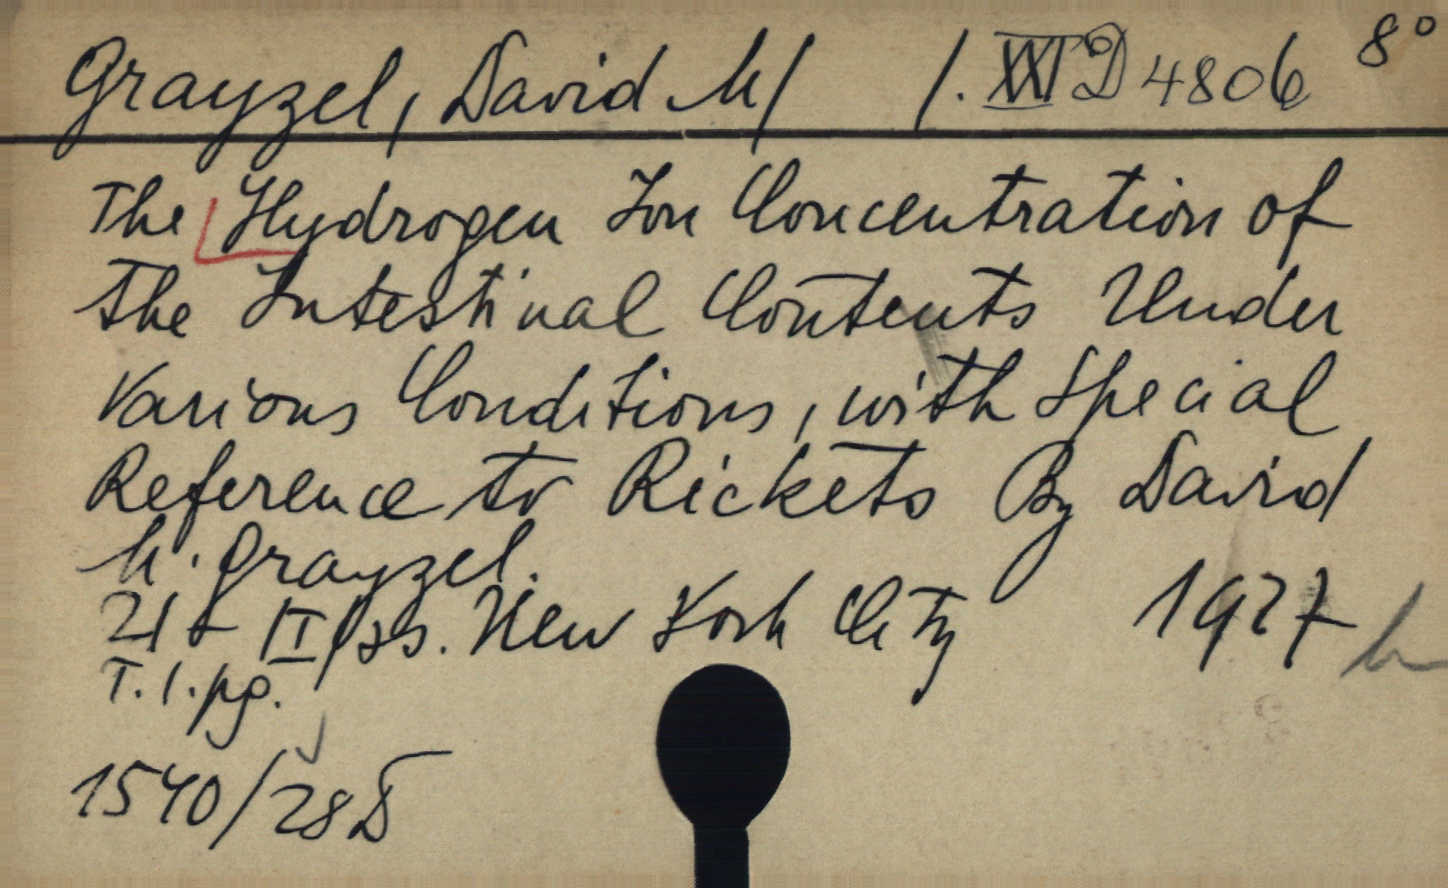 Grayzel, David M/ /. XVI D 4806 8°
The Hydrogen Ion Concentration of
the Intestinal Contents Under
Various Conditions, with Special
Reference to Rickets By David
M. Grayzel.
21 + II pss. New York City 1927
T. 1. pg.
1540/28 D